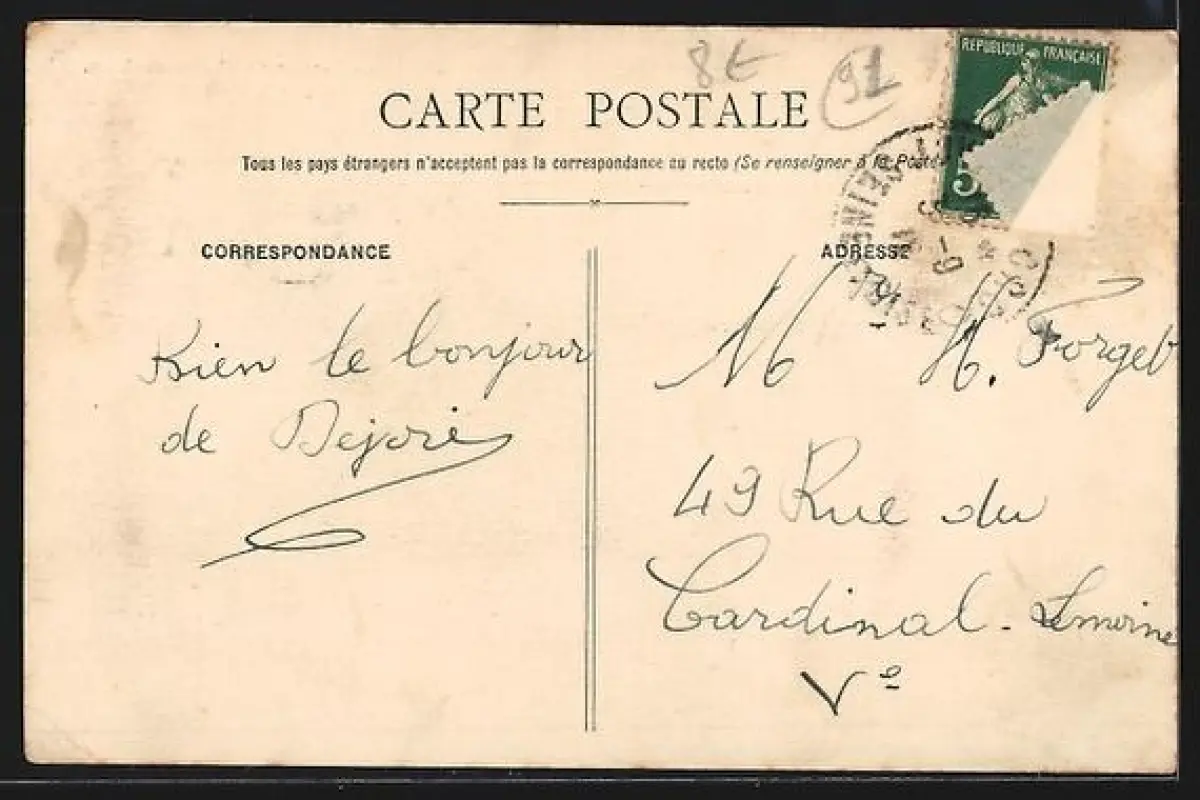 8€
91
REPUBLIQUE FRANÇAISE
5
CARTE POSTALE
Tous les pays étrangers n'acceptent pas la correspondance au recto (Se renseigner à la Poste
CORRESPONDANCE
ADRESSE
Bien le bonjour
de
M H. Forget
49 Rue du
Cardinal-Lemoine
Ve